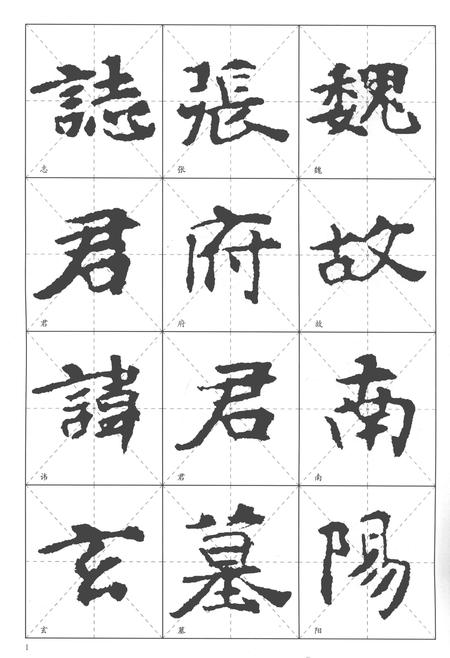 魏故南陽
張府君墓
誌君諱玄
魏故南阳
张府君墓
志君讳玄
1